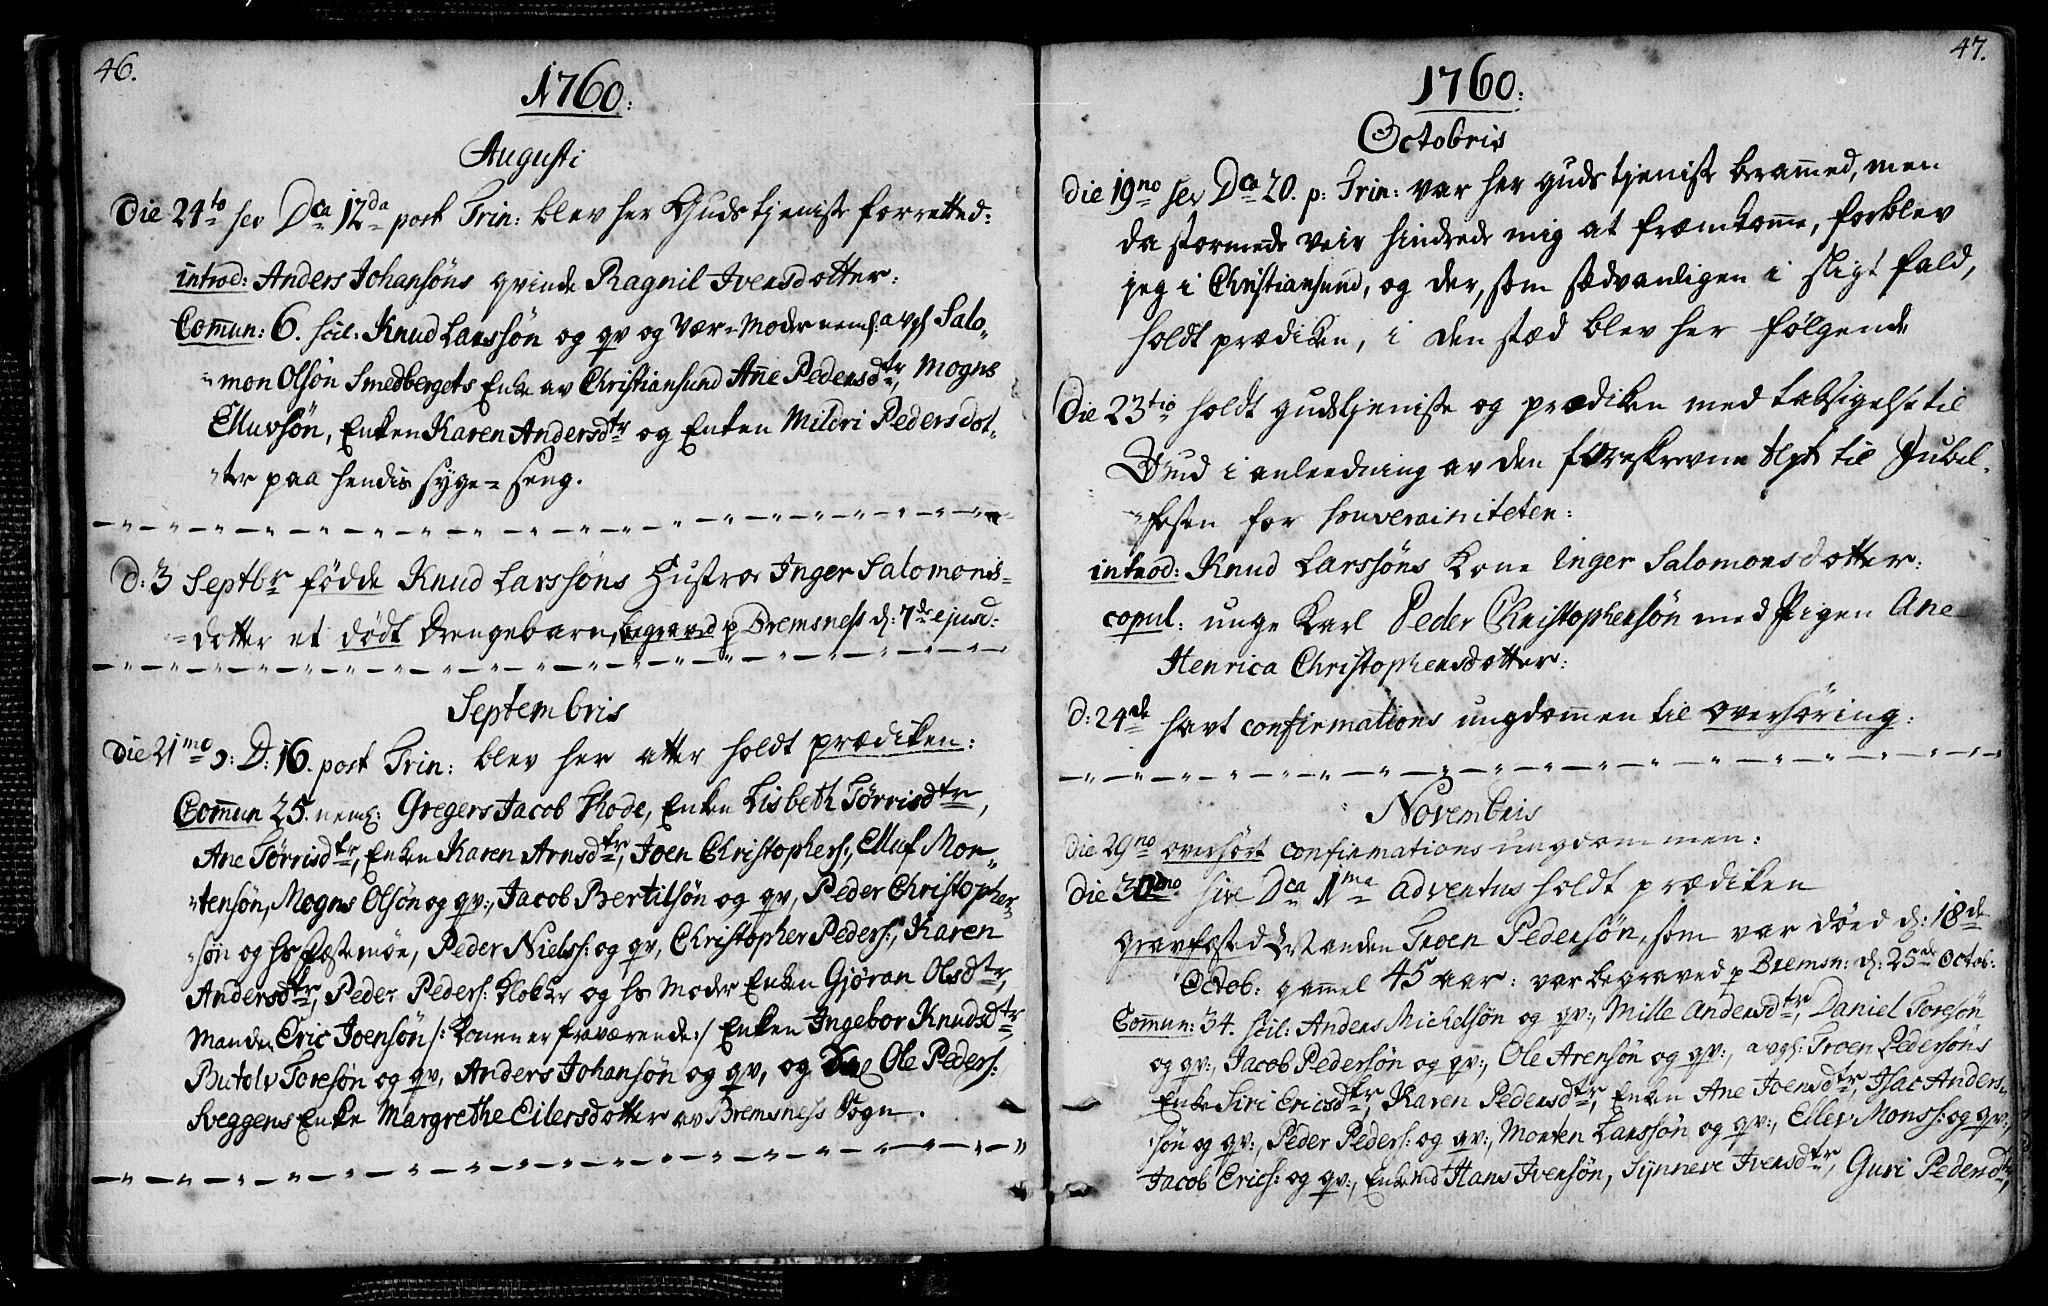 46.
1760:
Augusti
Die 24to sev Dca 12da post Trin: blev her Guds tjeniste forretted:
introd: Anders Johansøns qvinde Ragnil Iversdotter:
Com̄un: 6. scil: Knud Larssøn og qv og Vær-Moder neml: avgl Salo-
mon Olsøn Smedbergets Enke av Christiansund An̄e Pedersdtr, Mogns
Elluvsøn, Enken Karen Andersdtr og Enken Mildri Pedersdot-
ter paa hendis syge-seng.
D: 3 Septbr fødde Knud Larssøns Hustroe Inger Salomonis-
dotter et dødt drengebarn, begraved p Bremsness d: 7de ejusd:
Septembris
Die 21mo ɔ: D: 16. post Trin: blev her atter holdt prædiken:
Com̄un 25. neml: Gregers Jacob Thode, Enke Lisbeth Tørrisdtr,
Ane Tørrisdtr, Enken Karen Arnsdtr, Joen Christophers:, Elluf Mor-
tensøn, Mogns Olsøn og qv:, Jacob Bertilsøn og qv, Peder Christopher-
søn og hs festemøe, Peder Niels: og qv, Christopher Peders:, Karen
Andersdtr, Peder Peders: Klokker og hs Moder Enken Gjøran Olsdtr,
Manden Eric Joensøn /: konen er fraværende :/ Enken Ingebor Knudsdtr
Butolv Toresøn og qv, Anders Johansøn og qv, og Ole Peders:
Sveggens Enke Margrethe Eilersdotter av Bremsness Sogn.
47.
1760:
Octobris
Die 19no sev Dca 20. p: Trin: var her guds tjeniste beram̄ed, men
da stormede veir hindrede mig at fræmkom̄e, forblev
jeg i Christiansund, og der, som sædvanligen i sligt fald,
holdt prædiken, i den stæd blev her følgende
Die 23tio holdt gudstjeniste og prædiken med taksigelse til
Gud i anleedning av den foreskrevne til Jubel-
festen for souverainiteten:
introd: Knud Larssøns Kone Inger Salomonsdotter:
copul: unge Karl Peder Christophersøn med Pigen Ane
Henrica Christophersdotter:
d: 24de havt confirmations ungdommen til overhøring:
Novembris
Die 29no overhørt confirmations ungdommen:
Die 30mo sive Dca 1ma adventus holdt prædiken
gravfæsted Manden Troen Pedersøn, som var døed d: 18de
Octob: gam̄el 45 aar: var begraved p Bremsn: d: 25de Octob:
Com̄un: 34. scil: Anders Michelsøn og qv:, Mille Andersdtr, Daniel Toresøn
og qv:, Jacob Pedersøn og qv:, Ole Arensøn og qv:, avgl: Troen Pedersøns
Enke Siri Ericsdtr, Karen Pedersdtr, Enken Ane Joensdtr, Isac Anders-
søn og qv:, Peder Peders: og qv:, Morten Larssøn og qv:, Ellev Mons: og qv:,
Jacob Erics: og qv:, Enkemd Hans Iversøn, Synneve Iversdtr, Guri Pedersdtr,